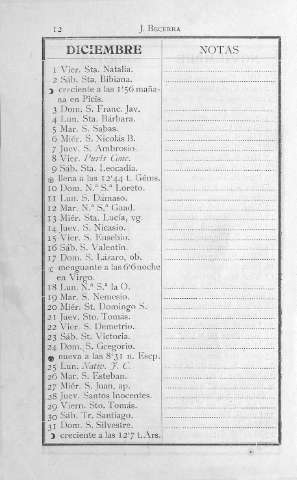 12 J. Becerra
DICIEMBRE NOTAS
1 Vier. Sta. Natalia.
2 Sáb. Sta. Bibiana.
☽ creciente a las 1'56 maña-
na en Picis.
3 Dom. S. Franc. Jav.
4 Lun. Sta. Bárbara.
5 Mar. S. Sabas.
6 Miér. S. Nicolás B.
7 Juev. S. Ambrosio.
8 Vier. Purís Conc.
9 Sáb. Sta. Leocadia.
llena a las 12'44 t. Géms.
10 Dom. N.ª S.ª Loreto.
11 Lun. S. Dámaso.
12 Mar. N.ª S.ª Guad.
13 Miér. Sta. Lucía, vg.
14 Juev. S. Nicasio.
15 Vier. S. Eusebio.
16 Sáb. S. Valentín.
17 Dom. S. Lázaro, ob.
☾ menguante a las 6'6 noche
en Virgo.
18 Lun. N.ª S.ª la O.
19 Mar. S. Nemesio.
20 Miér. St. Domingo S.
21 Juev. Sto. Tomás.
22 Vier. S. Demetrio.
23 Sáb. St. Victoria.
24 Dom. S. Gregorio.
nueva a las 8'31 n. Escp.
25 Lun. Nativ. J. C.
26 Mar. S. Esteban.
27 Miér. S. Juan, ap.
28 Juev. Santos Inocentes.
29 Viern. Sto. Tomás.
30 Sáb. Tr. Santiago.
31 Dom. S. Silvestre.
☽ creciente a las 12'7 t. Ars.